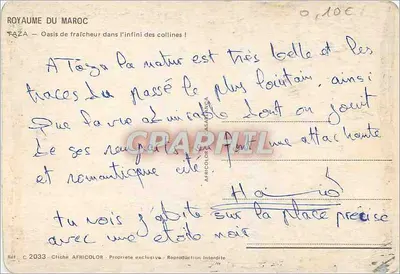 ROYAUME DU MAROC
0,10€
TAZA — Oasis de fraîcheur dans l'infini des collines !
A Taza la natur est très belle et les
traces du passé le plus lointain, ainsi
que la vue admirable dont on jouit
de ses remparts en font une attachante
et romantique cité.
CRAPHIL
AFRICOLOR
tu vois j'abite sur la place precise
avec une etoile noir.
Réf. C 2033 - Cliché AFRICOLOR - Propriété exclusive - Reproduction interdite